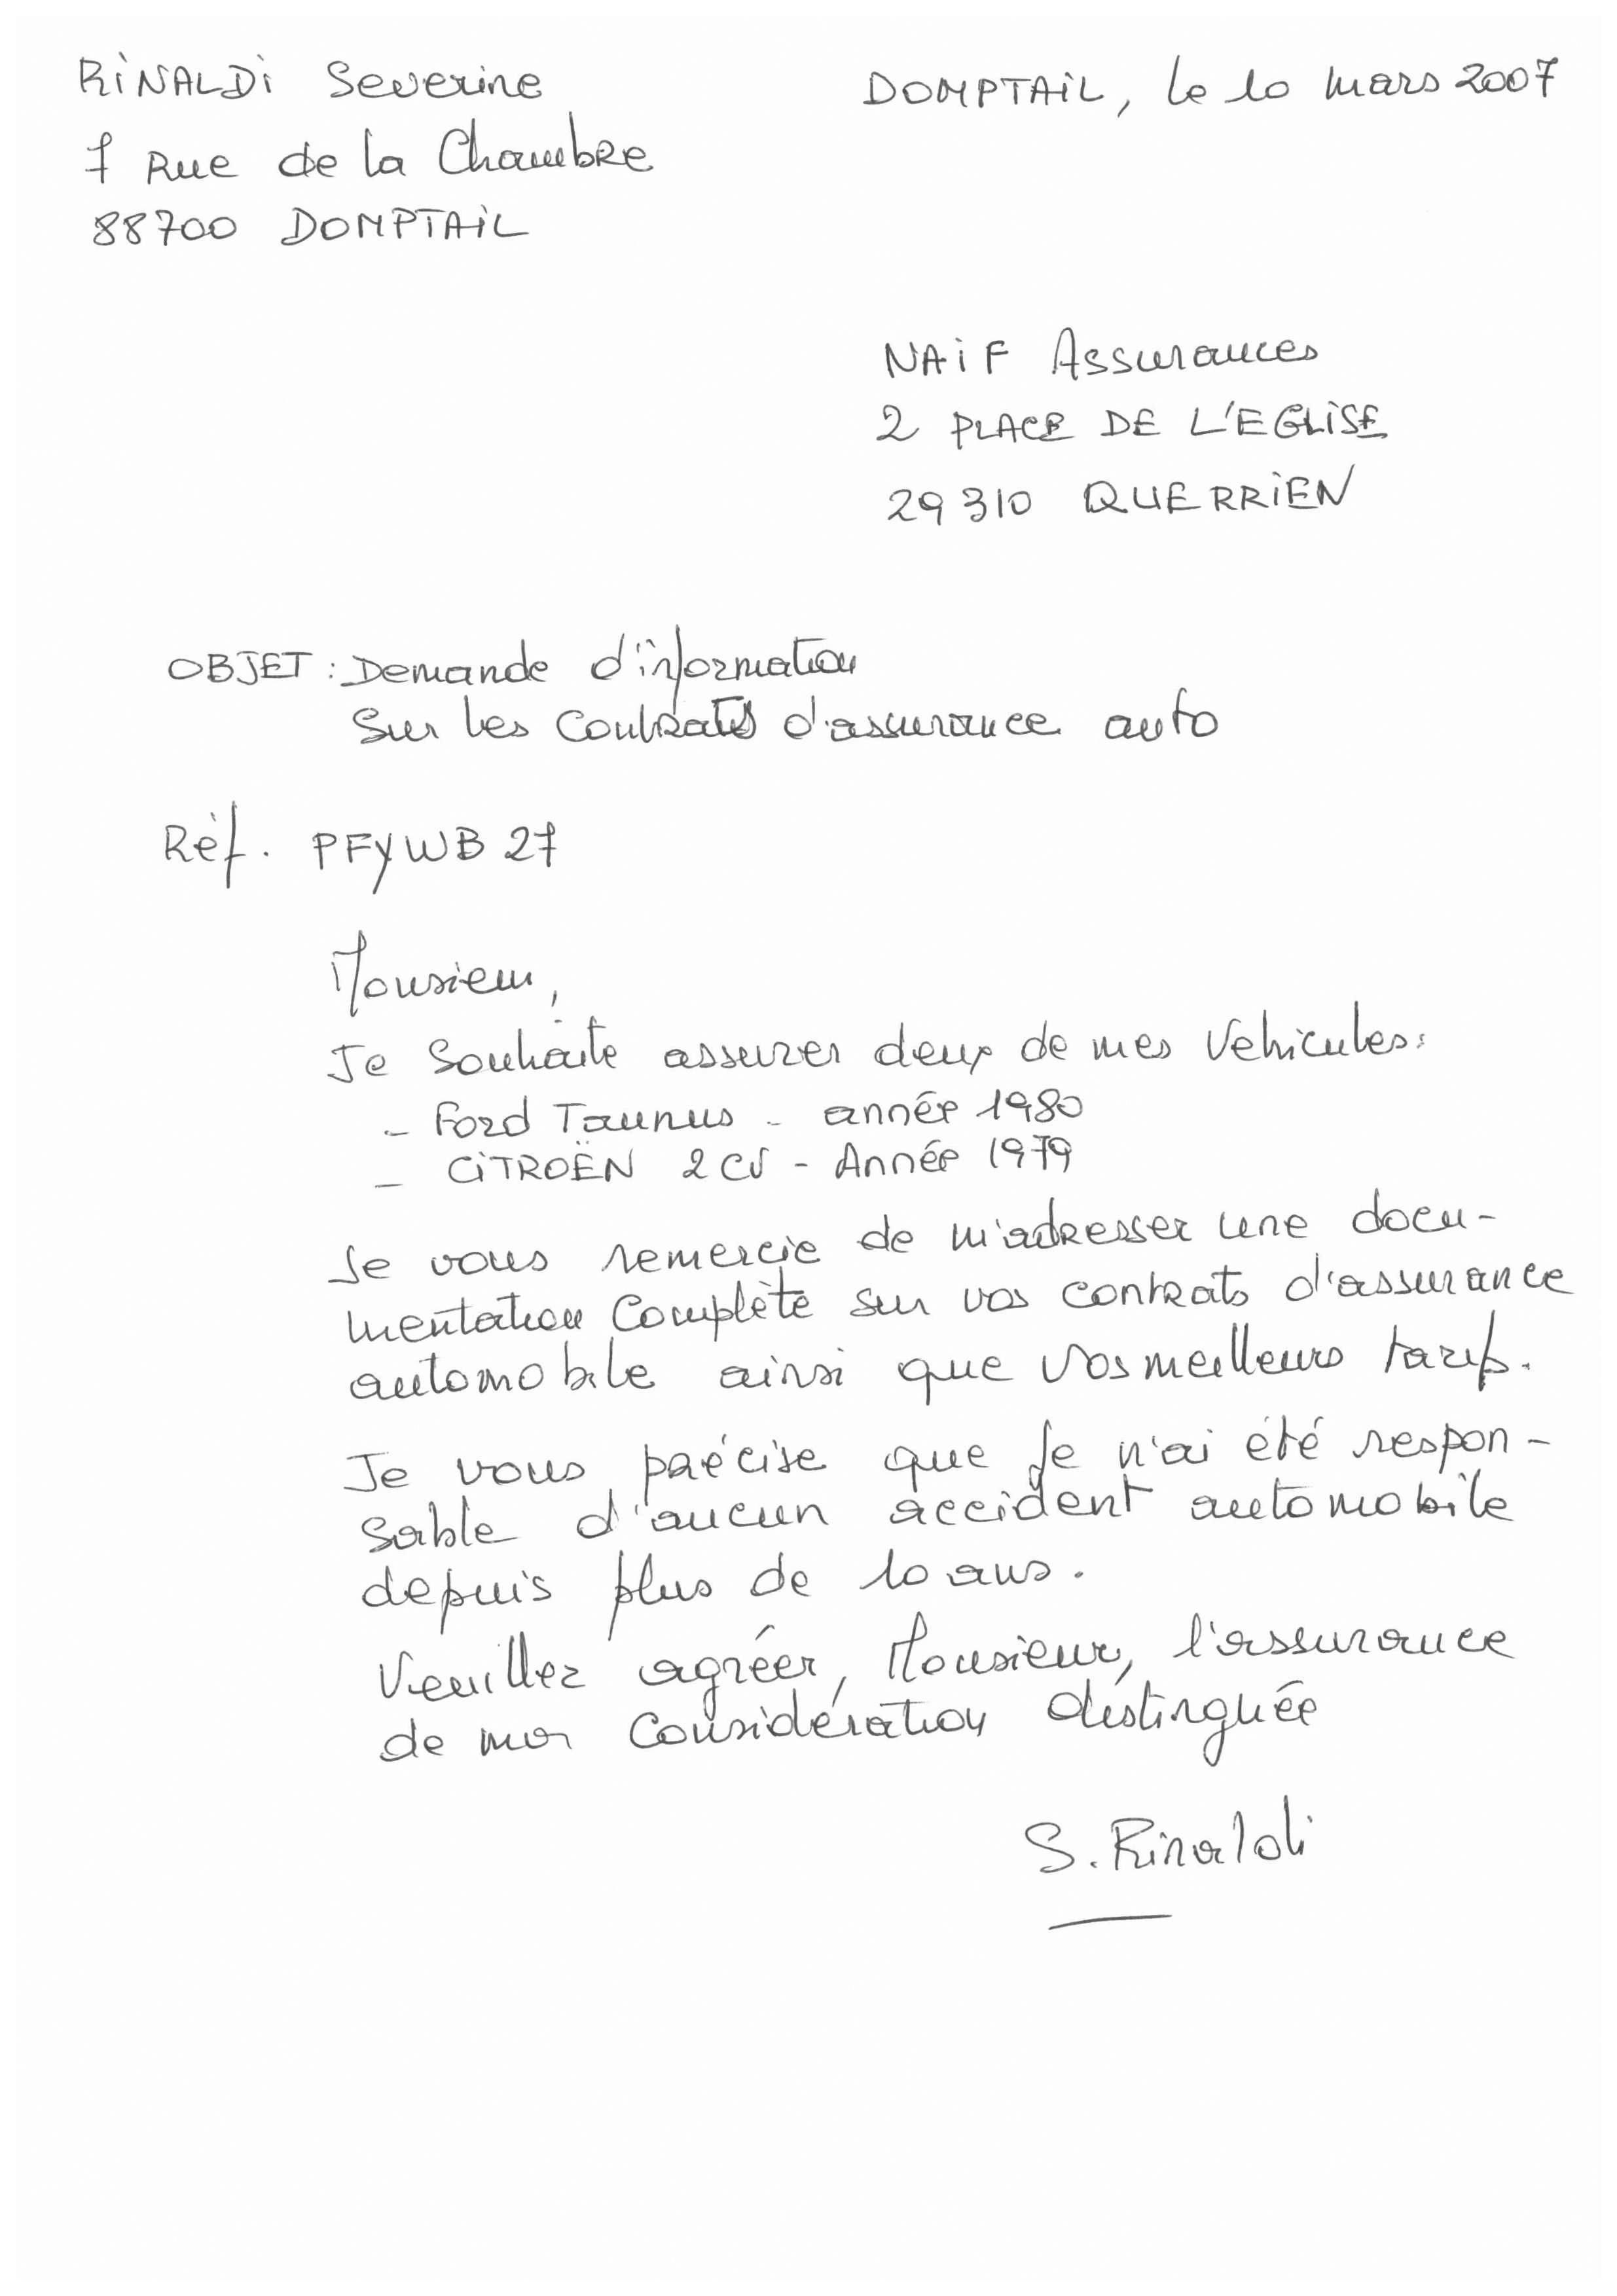 RiNALDi Severine
DOMPTAiL, le 10 mars 2007
7 Rue de la Chambre
88700 DOMPTAiL
NAiF Assurances
2 PLACE DE L'EGLiSE
29310 QUERRiEN
OBJET : Demande d'information
Sur les Contrats d'assurance auto
Réf. PFYWB 27
Monsieur,
Je Souhaite assurer deux de mes Vehicules:
- Ford Taunus - année 1980
- CiTROËN 2 CV - Année 1979
Je vous remercie de m'adresser une docu-
mentation Complète sur vos contrats d'assurance
automobile ainsi que vos meilleurs tarifs.
Je vous précise que je n'ai été respon-
sable d'aucun accident automobile
depuis plus de 10 ans.
Veuillez agréer, Monsieur, l'assurance
de ma Considération distinguée
S. Rinaldi